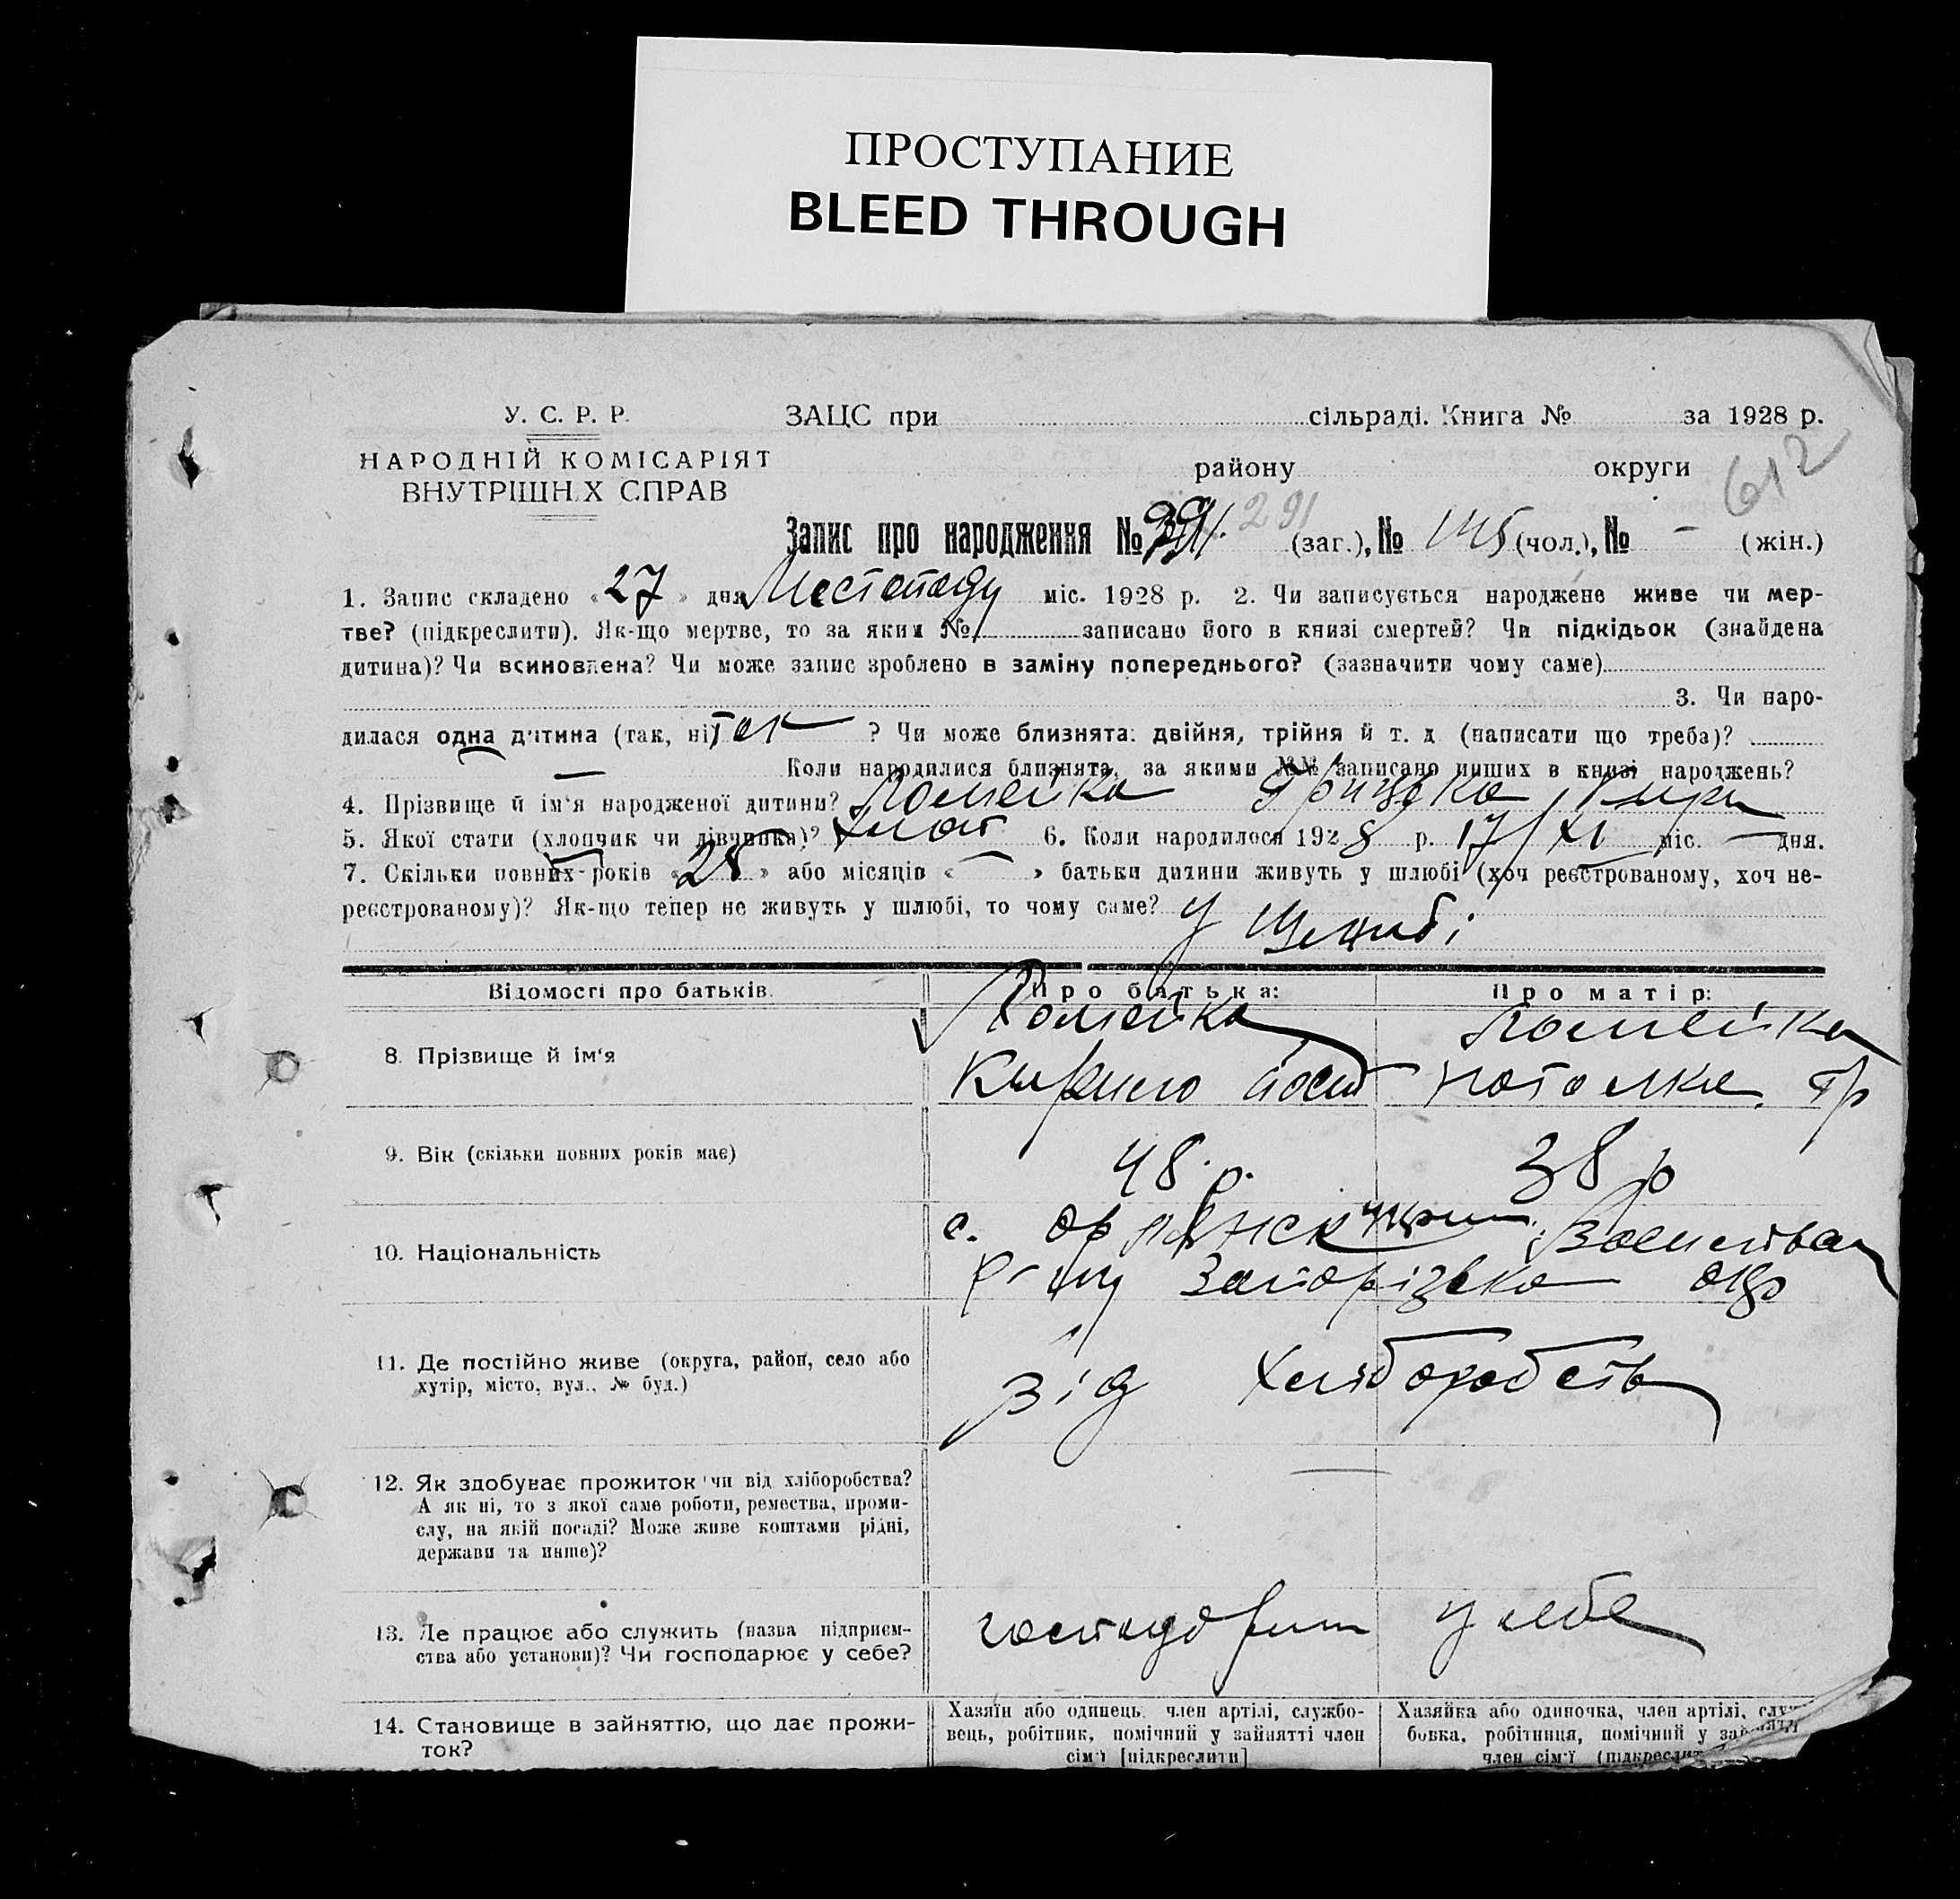 ПРОСТУПАНИЕ
BLEED THROUGH
У. С. Р. Р.
ЗАЦС при сільраді. Книга № за 1928 р.
НАРОДНІЙ КОМІСАРІЯТ
району округи
ВНУТРІШНІХ СПРАВ
612
Запис про народження № 291 (заг.), № 145 (чол.), № – (жін.)
1. Запис складено «27» дня Листопаду міс. 1928 р. 2. Чи записується народжене живе чи мер-
тве? (підкреслити). Як-що мертве, то за яким № записано його в книзі смертей? Чи підкідьок (знайдена
дитина)? Чи всиновлена? Чи може запис зроблено в заміну попереднього? (зазначити чому саме)
3. Чи наро-
дилася одна дитина (так, ні) так ? Чи може близнята: двійня, трійня й т. д (написати що треба)?
— Коли народилися близнята, за якими №№ записано инших в книзі народжень?
4. Прізвище й ім'я народженої дитини? Ломейко Грицько Кири
5. Якої стати (хлопчик чи дівчинка)? хлоп 6. Коли народилося 1928 р. 17/XI міс. — дня.
7. Скільки повних років «28» або місяців « — » батьки дитини живуть у шлюбі (хоч реєстрованому, хоч не-
реєстрованому)? Як-що тепер не живуть у шлюбі, то чому саме? У Шлюбі
Відомості про батьків. Про батька: Про матір:
8. Прізвище й ім'я
Ломейко Ломейко
Кирило Йосип Наталка Гр
9. Вік (скільки повних років має)
48 р. 38 р
10. Національність
с. Орлянск укрт Василівка
р-ну Запорізько окр
11. Де постійно живе (округа, район, село або
хутір, місто, вул., № буд.)
Від Хліборобств
12. Як здобуває прожиток чи від хліборобства?
А як ні, то з якої саме роботи, ремества, проми-
слу, на якій посаді? Може живе коштами рідні,
держави та инше)?
13. Де працює або служить (назва підприєм-
ства або установи)? Чи господарює у себе?
господорит у себе
14. Становище в зайняттю, що дає прожи-
ток?
Хазяїн або одинець, член артілі, службо-
вець, робітник, помічний у зайнятті член
сім'ї [підкреслити]
Хазяйка або одиночка, член артілі, служ
бовка, робітниця, помічний у зайнятт
член сім'ї (підкреслит